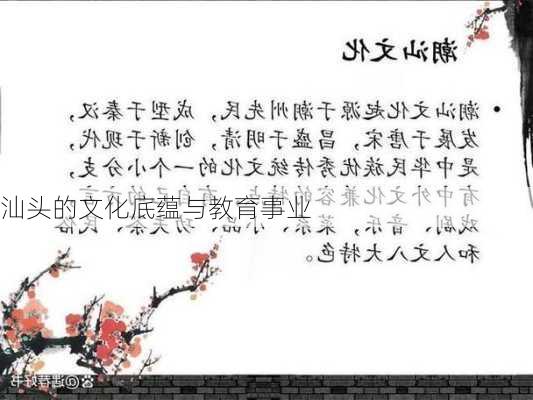 潮汕文化
• 潮汕文化起源于潮州先民，成型于秦汉，
发展于唐宋，昌盛于明清，创新于现代，
是中华民族优秀传统文化的一个小分支，
有中外文化兼容的特点，有自己的方言、
汕头的文化底蕴与教育事业
戏剧、音乐，菜系、小品、功夫茶、民俗
和人文八大特色。